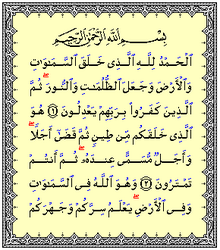 بِسْمِ اللَّهِ الرَّحْمَٰنِ الرَّحِيمِ
الْحَمْدُ لِلَّهِ الَّذِي خَلَقَ السَّمَٰوَٰتِ
وَالْأَرْضَ وَجَعَلَ الظُّلُمَٰتِ وَالنُّورَ ثُمَّ
الَّذِينَ كَفَرُوا بِرَبِّهِمْ يَعْدِلُونَ ١ هُوَ
الَّذِي خَلَقَكُم مِّن طِينٍ ثُمَّ قَضَىٰ أَجَلًا
وَأَجَلٌ مُّسَمًّى عِندَهُ ثُمَّ أَنتُمْ
تَمْتَرُونَ ٢ وَهُوَ اللَّهُ فِي السَّمَٰوَٰتِ
وَفِي الْأَرْضِ يَعْلَمُ سِرَّكُمْ وَجَهْرَكُمْ